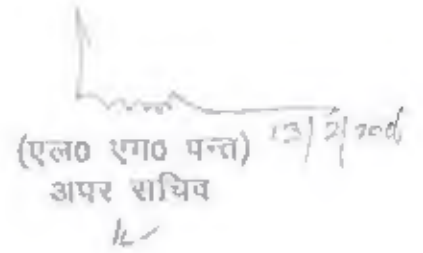 (एल० एम० पन्त) 13/2/
अपर सचिव